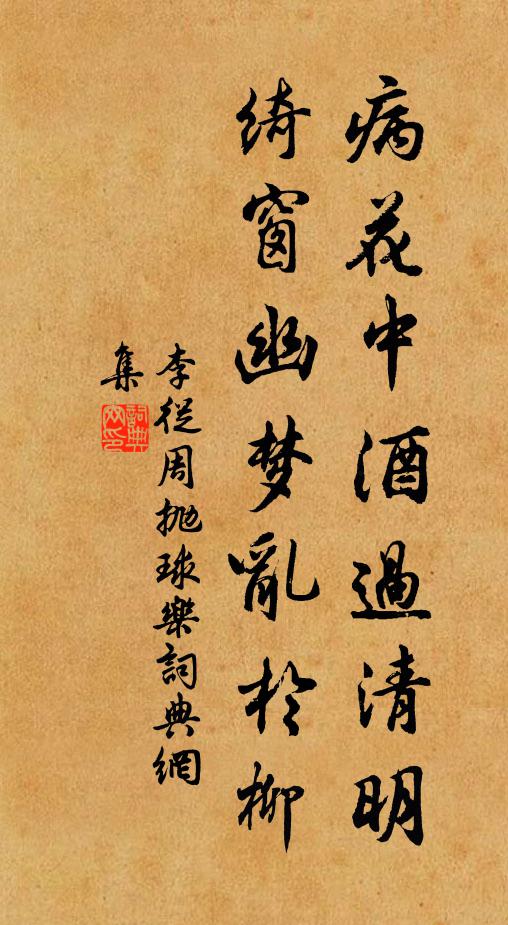 病花中酒過清明
綺窗幽梦亂於柳
李從周抛球樂詞典網
集
詞典
网印